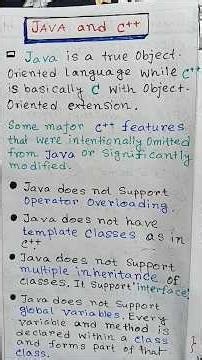 JAVA and C++
Java is a true Object-
Oriented Language while C++
is basically C with Object-
Oriented extension.
Some major C++ features
that were intentionally omitted
from Java or significantly
modified.
Java does not support
Operator Overloading.
Java does not have
template classes as in
C++
Java does not support
multiple inheritance of
classes. It support "interface"
Java does not support
global variables. Every
variable and method is
declared within a class
and forms part of that
class.